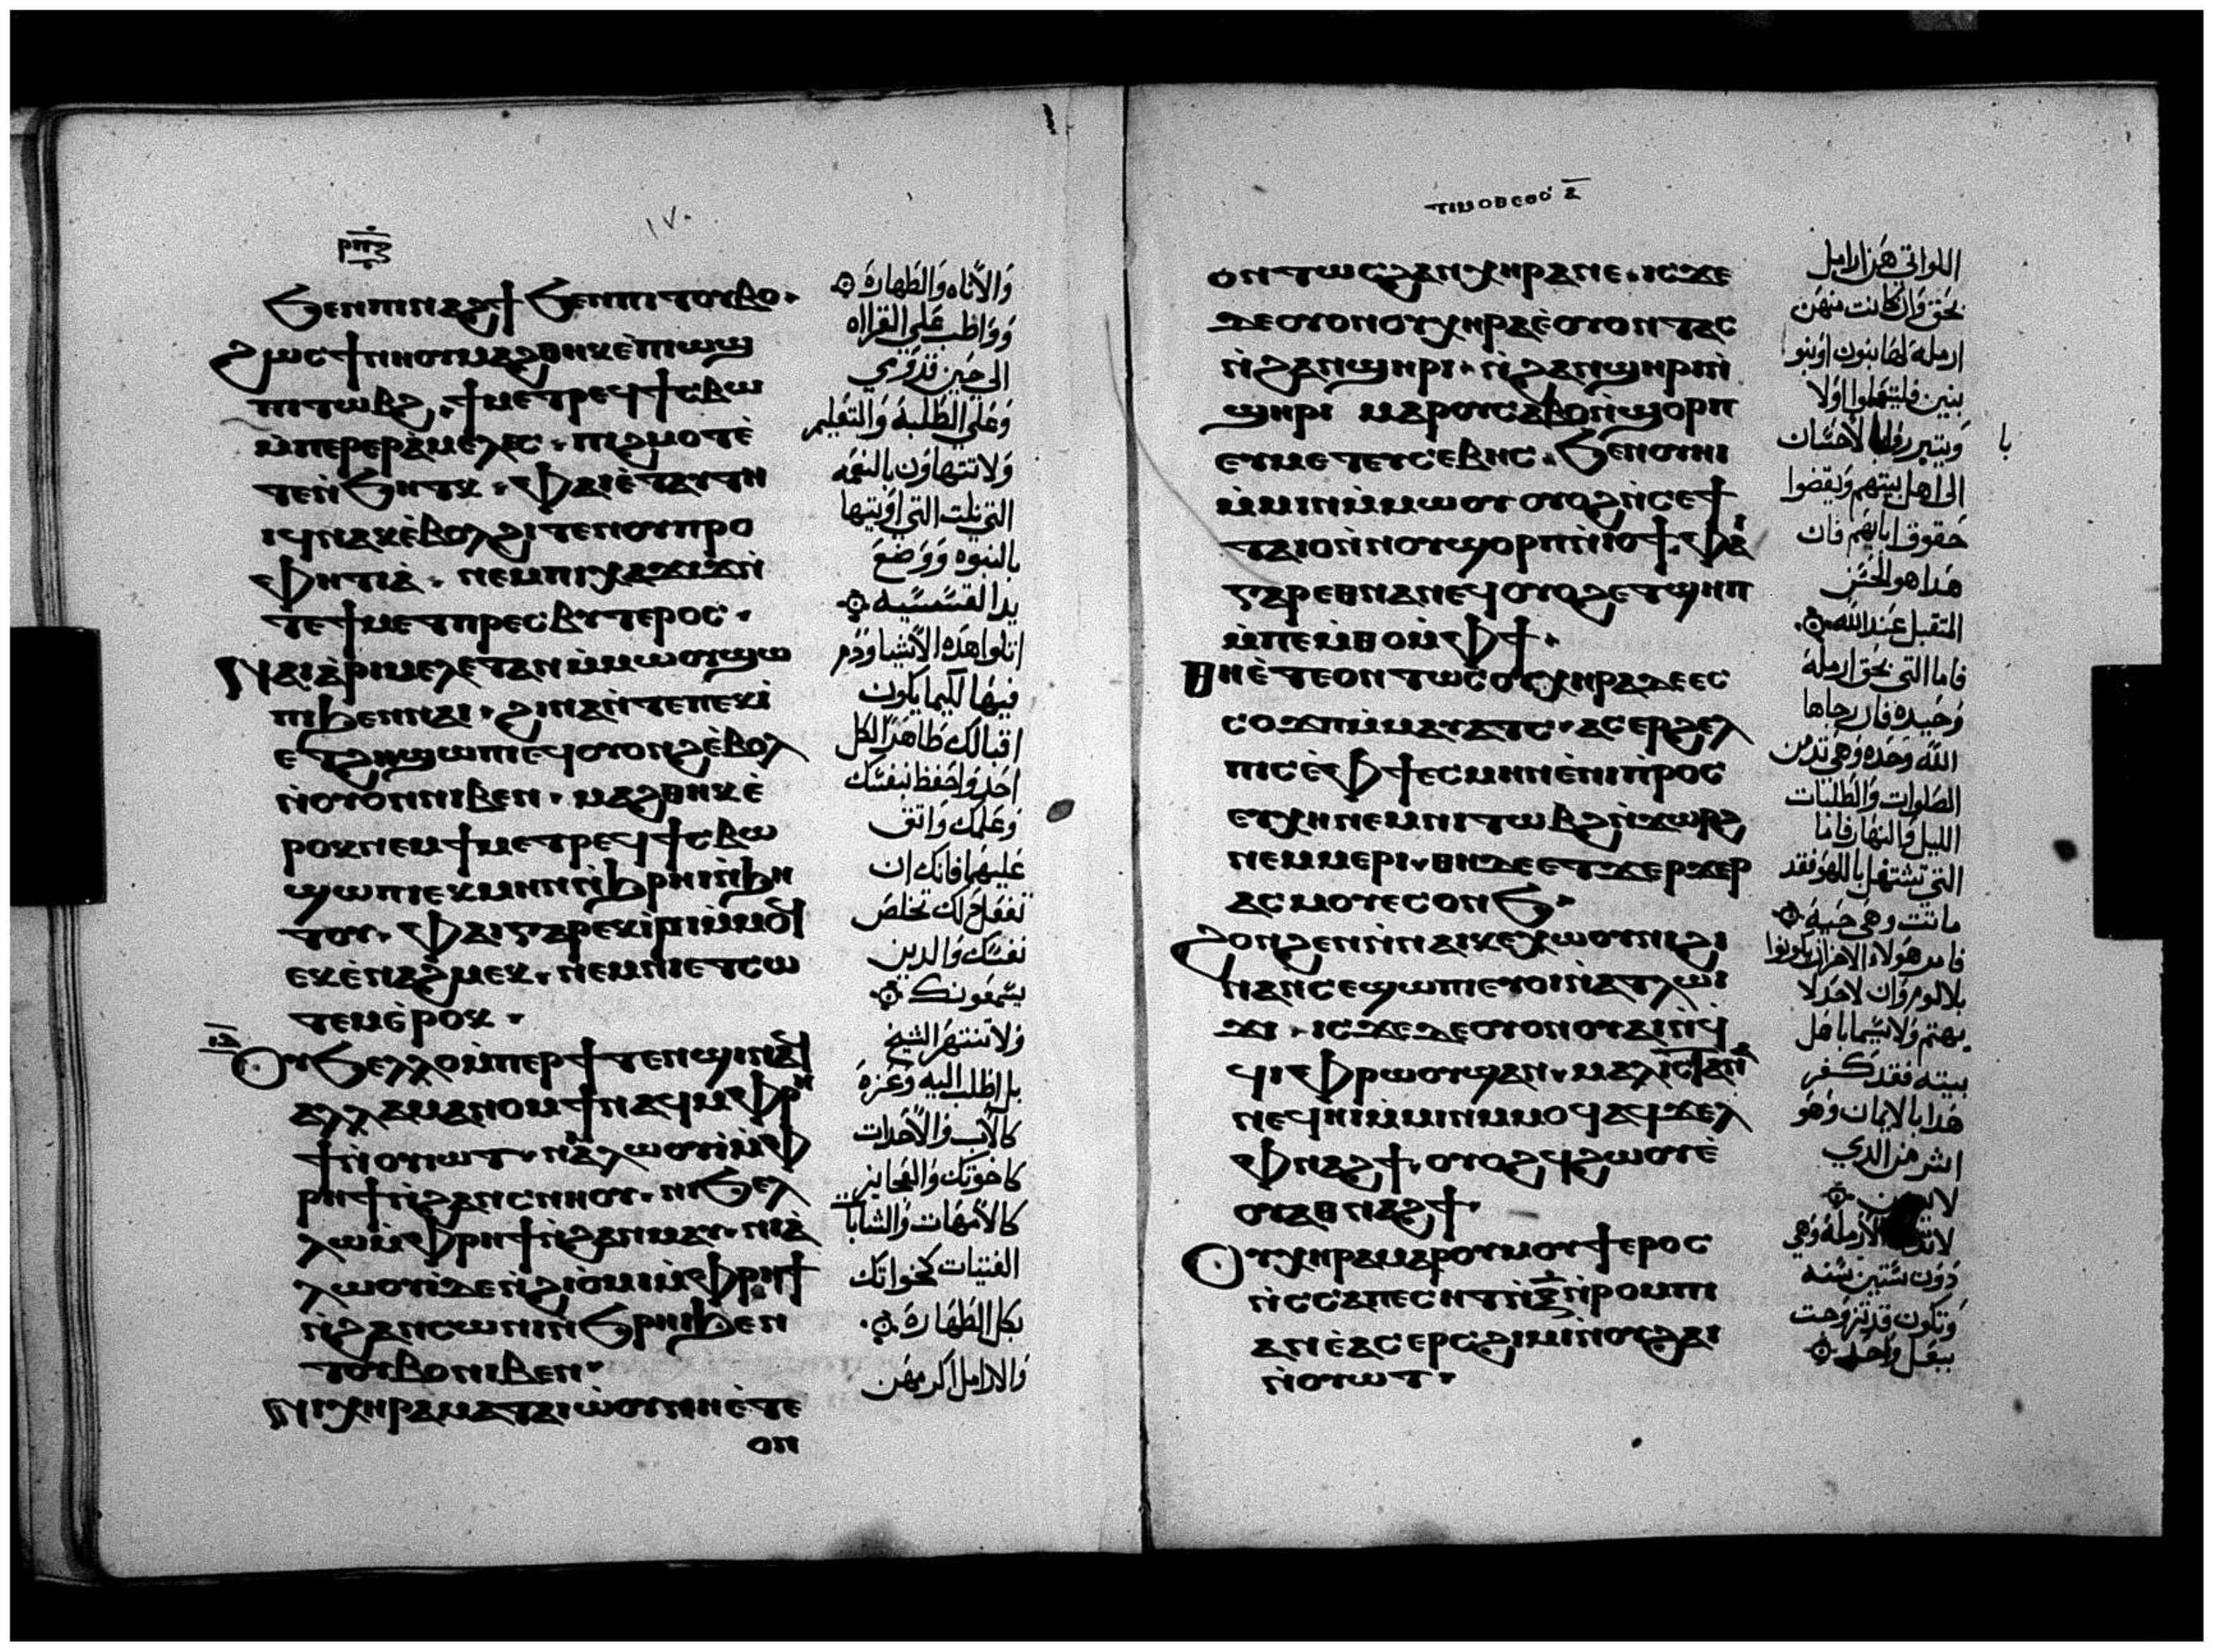 ⲣⲡⲍ
١٧٠
ϧⲉⲛⲡⲓⲛⲁϩϯ ϧⲉⲛⲡⲓⲧⲟⲩⲃⲟ.
ϩⲱⲥϯⲛⲏⲟⲩⲙⲁϩⲑⲏⲕⲉ̀ⲡⲓⲱϣ
ⲡⲓⲧⲱⲃϩ. ϯⲙⲉⲧⲣⲉϥϯⲥⲃⲱ
ⲙ̀ⲡⲉⲣⲉⲣⲁ̀ⲙⲉⲗⲉⲥ. ⲡⲓϩⲙⲟⲧⲉ̀
ⲧⲉⲛ̀ϧⲏⲧⲕ. ⲫⲁⲓⲉ̀ⲧⲁⲩⲧⲏ
ⲓϥⲛⲁⲕⲉ̀ⲃⲟⲗϩⲓⲧⲉⲛⲟⲩⲡⲣⲟ
ⲫⲏⲧⲓⲁ̀. ⲛⲉⲙⲡⲓⲭⲁϫⲓϫⲛ̀
ⲧⲉϯⲙⲉⲧⲡⲣⲉⲥⲃⲩⲧⲉⲣⲟⲥ.
ⲛⲁⲓⲁ̀ⲣⲓⲙⲉⲗⲉⲧⲁⲛⲙ̀ⲙⲱⲟⲩϣⲱ
ⲡⲓϧⲉⲛⲛⲁⲓ. ϩⲓⲛⲁⲛ̀ⲧⲉⲡⲉⲕϫⲓ̀
ⲉⲧϩⲏϣⲱⲡⲓⲉϥⲟⲩⲟⲛϩⲉ̀ⲃⲟⲗ
ⲛ̀ⲟⲩⲟⲛⲛⲓⲃⲉⲛ. ⲙⲁϩⲑⲏⲕⲉ̀
ⲣⲟⲕⲛⲉⲙϯⲙⲉⲧⲣⲉϥϯⲥⲃⲱ
ϣⲱⲡⲓⲉⲕⲙⲏⲛⲛ̀ϧⲣⲏⲓⲛ̀ϧⲏ
ⲧⲟⲩ. ⲫⲁⲓⲅⲁⲣⲉⲕⲓ̀ⲣⲓⲙ̀ⲙⲟϥ
ⲉⲕⲉ̀ⲛⲁϩⲙⲉⲕ. ⲛⲉⲙⲛⲓⲉⲧⲥⲱ
ⲧⲉⲙⲉ̀ⲣⲟⲕ.
ⲟⲩϧⲉⲗⲗⲟⲙ̀ⲡⲉⲣϯⲧⲉⲛϣⲓⲛⲁϥ
ⲁⲗⲗⲁⲙⲁⲛⲟⲙϯⲛⲁϥⲙ̀ⲫⲣⲏ
ϯⲛ̀ⲟⲩⲓⲱⲧ. ⲛⲓⲁⲗⲱⲟⲩⲓ̀ⲙ̀ⲫ
ⲣⲏϯⲛ̀ϩⲁⲛⲥⲛⲏⲟⲩ. ⲛⲓϧⲉⲗ
ⲗⲱⲙ̀ⲫⲣⲏϯⲛ̀ϩⲁⲛⲙⲁⲩ. ⲛⲓⲁ̀
ⲗⲱⲟⲩⲓ̀ⲇⲉⲛ̀ϩⲓⲟ̀ⲙⲓⲙ̀ⲫⲣⲏϯ
ⲛ̀ϩⲁⲛⲥⲱⲛⲓⲛ̀ϧⲣⲏⲓϧⲉⲛ
ⲧⲟⲩⲃⲟⲛⲓⲃⲉⲛ.
ⲛⲓⲭⲏⲣⲁⲙⲁⲧⲁⲓⲱ̀ⲟⲩⲛⲏⲉ̀ⲧⲉ
ⲟⲛ
وَالأناه وَالطَهارة
وَوَاظب عَلى القرااه
الى حَين قدوَمي
وَعَلى الطَلبة وَالتعَليم
وَلا تتهاوَن بالنعَمه
التي نلت التي اوَتيتها
بالنبوَه وَوَضعَ
يدا القسّمسّيه
اتلوا هَذه الأشيا وَدم
فيهَا لكيما يكون
اقبالك ظاهَرًا لكل
احَد وَاحَفظ نفسّك
وَعَلمك وَاتق
عَليهَما فانك ان
تفعَل دَلك تخلصَ
نفسّك وَالدين
يسّمعَونك
وَلا تنتهَر الشيخ
بل اطلب اليه وَعَزه
كالأب وَالأحَدات
كاخوَتك وَالعَجايز
كالأمهَات وَالشابات
الفتيات كخواتك
بكل الطَهَارة
وَالارامل اكرمهَن
ⲧⲓⲙⲟⲑⲉⲟⲥ ⲁ̅
ⲟⲛⲧⲱⲥϩⲁⲛⲭⲏⲣⲁⲛⲉ. ⲓⲥϫⲉ
ⲇⲉⲟⲩⲟⲛⲟⲩⲭⲏⲣⲁⲉ̀ⲟⲩⲟⲛⲧⲁⲥ
ⲛ̀ϩⲁⲛϣⲏⲣⲓ. ⲛ̀ϩⲁⲛϣⲏⲣⲓⲛ̀
ϣⲏⲣⲓ ⲙⲁⲣⲟⲩⲥⲁⲃⲟⲛ̀ϣⲟⲣⲡ
ⲉⲩⲙⲉⲧⲉⲩⲥⲉⲃⲏⲥ. ϧⲉⲛⲟⲩⲏⲓ
ⲙ̀ⲙⲓⲛⲙ̀ⲙⲱⲟⲩ ⲟⲩⲟϩⲛ̀ⲥⲉϯ
ⲧⲁⲓⲟⲛ̀ⲛⲟⲩϣⲟⲣⲡⲛ̀ⲓⲟϯ. ⲫⲁⲓ
ⲅⲁⲣⲉⲑⲛⲁⲛⲉϥⲟⲩⲟϩⲉⲧϣⲏⲡ
ⲙ̀ⲡⲉⲙ̀ⲑⲟⲙ̀ⲫϯ.
ⲑⲏⲉ̀ⲧⲉⲟⲛⲧⲱⲥⲟⲩⲭⲏⲣⲁⲇⲉⲉⲥ
ⲥⲟϫⲡⲙ̀ⲙⲁⲩⲁⲧⲥ. ⲁⲥⲉⲣϩⲉⲗ
ⲡⲓⲥⲉ̀ⲫϯⲉⲥⲙⲏⲛⲉ̀ⲛⲓⲡⲣⲟⲥ
ⲉⲩⲭⲏⲛⲉⲙⲛⲓⲧⲱⲃϩⲛ̀ϫⲱⲣϩ
ⲛⲉⲙⲙⲉⲣⲓ. ⲑⲏⲇⲉⲉⲧϫⲉⲣϫⲉⲣ
ⲁⲥⲙⲟⲩⲉⲥⲟⲛϧ.
ϩⲟⲛϩⲉⲛⲛ̀ⲛⲁⲓⲕⲉⲭⲱⲟⲩⲛⲓϩⲓ
ⲛⲁⲛ̀ⲥⲉϣⲱⲡⲓⲉⲩⲟⲓⲛ̀ⲁⲧⲗⲱⲓ
ϫⲓ. ⲓⲥϫⲉⲇⲉⲟⲩⲟⲛⲟⲩⲁⲓⲛ̀ϥ
ϥⲓⲫⲣⲱⲟⲩϣⲁⲛ. ⲙⲁⲗⲓⲥⲧⲁⲛ̀
ⲛⲉϥⲏⲓⲙ̀ⲙⲓⲛⲙⲙⲟϥⲁϥϫⲉⲗ
ⲫⲛⲁϩϯ. ⲟⲩⲟϩϥϩⲱⲟⲩⲉ̀
ⲟⲩⲁⲑⲛⲁϩϯ.
ⲟⲩⲭⲏⲣⲁⲙⲁⲣⲟⲩⲙⲟⲩϯⲉⲣⲟⲥ
ⲛ̀ⲥⲥⲁⲡⲉⲥⲏⲧⲛ̀ⲝ̅ⲛ̀ⲣⲟⲙⲡⲓ
ⲁⲛⲉ̀ⲁⲥⲉⲣⲥϩⲓⲙⲓⲛ̀ⲟⲩϩⲁⲓ
ⲛ̀ⲟⲩⲱⲧ.
اللواتي هَن ارامل
بحَق وَان كانت منهَن
ارمله لهَا بنون اوَ بنو
بنين فليتعَلموا اوَلا
الى اهل بيتهم وَيقضَوا
حَقوق ابايهَم فان
هَدا هو الحَسّن
المتقبل عَند اللّه
فاما التي بحَق ارملة
وَحَيده فان رجاها
اللّه وَحَده وَهَي تدمن
الصَلوات وَالطَلبات
الليل وَالنهَار فامَا
التي تشتغل باللهَو فقد
ماتت وهَي حَيه
بلا لوم وَان لاحَد لا
يهتم وَلا سّيما باهَل
بيته فقد كفر
هَدا بالايمان وَهَو
اشر من الدي
دَوَن سّتين سّنه
وَتكون قد تزوجت
ببعَل وَاحَد